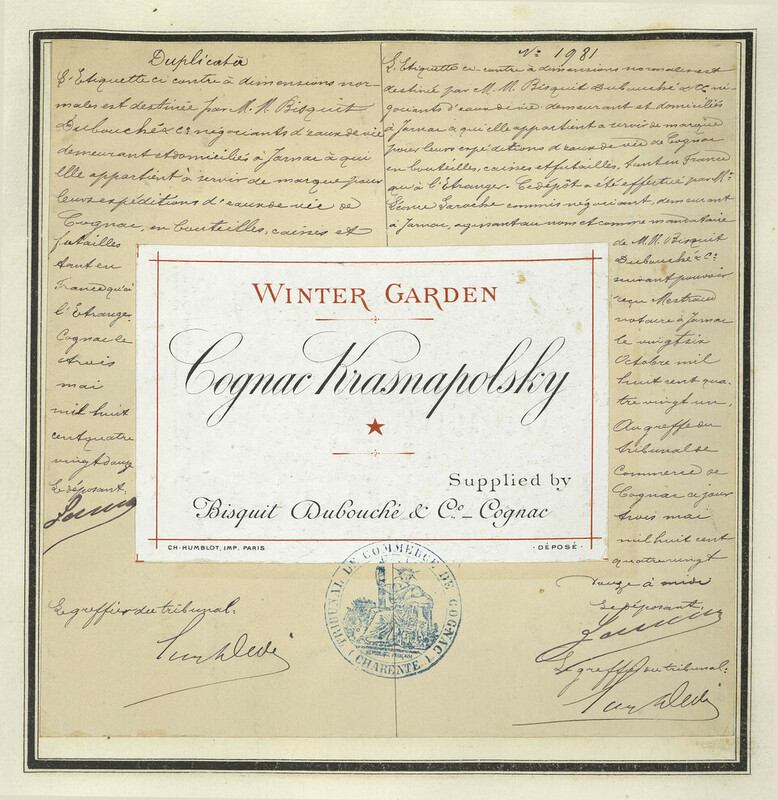 Duplicata
L'Etiquette ci contre à dimensions nor-
males est destinée par M. M. Bisquit
Dubouché & Co négociants d'eaux de vie
demeurant et domiciliés à Jarnac à qui
elle appartient à servir de marque pour
leurs expéditions d'eaux de vie de
Cognac, en bouteilles, caisses et
futailles
tant en
France qu'à
l'Etranger.
Cognac le
trois
mai
mil huit
cent quatre
vingt douze
Le déposant,
Le greffier du tribunal:
No 1981
L'Etiquette ci-contre à dimensions normales est
destinée par M. M. Bisquit Dubouché & Co né-
gociants d'eaux de vie demeurant et domiciliés
à Jarnac à qui elle appartient a servir de marque
pour leurs expéditions d'eaux de vie de Cognac
en bouteilles, caisses et futailles, tant en France
qu'à l'étranger. Ce dépôt a été effectué par Mr
Léonce Laroche commis négociant, demeurant
à Jarnac, agissant au nom et comme mandataire
de M. M. Bisquit
Dubouché & Co
suivant pouvoir
reçu Mestraud
notaire à Jarnac
le vingt six
Octobre mil
huit cent qua-
tre vingt un,
Au greffe du
tribunal de
Commerce de
Cognac ce jour
trois mai
mil huit cent
quatre vingt
douze à midi
Le déposant,
Le greffier du tribunal:
WINTER GARDEN
Cognac Krasnapolsky
Supplied by
Bisquit Dubouché & Co. - Cognac
CH. HUMBLOT, IMP. PARIS
· DÉPOSÉ ·
TRIBUNAL DE COMMERCE DE COGNAC
(CHARENTE)